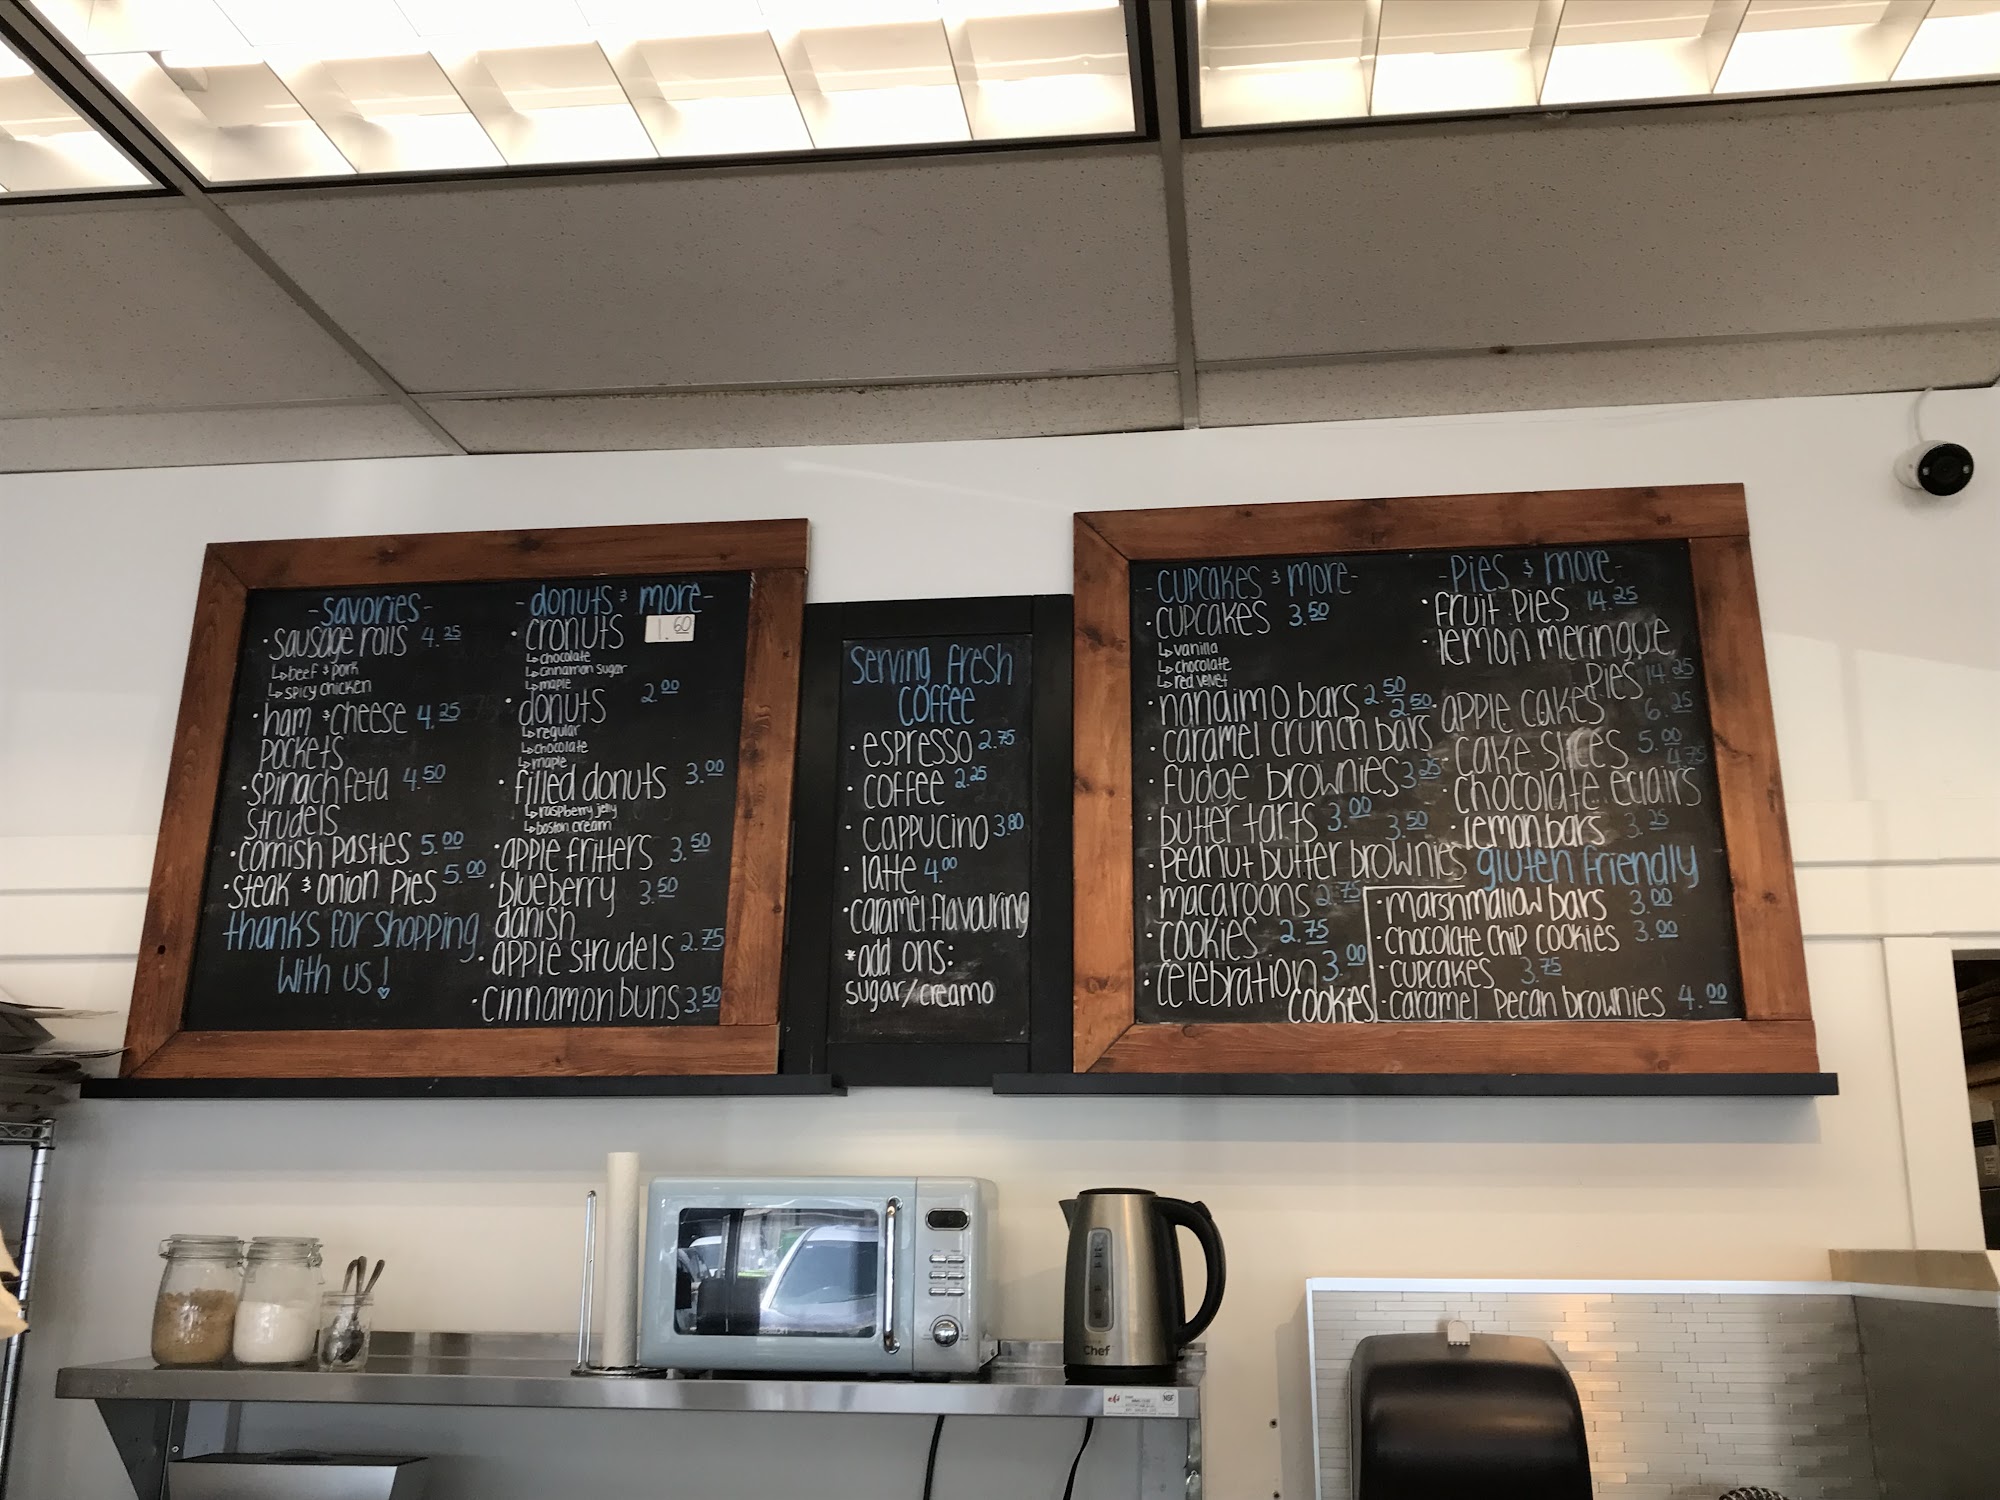 -savories-
· sausage rolls 4.25
↳ beef & pork
↳ spicy chicken
· ham & cheese 4.25
pockets
· spinach feta 4.50
strudels
· cornish pasties 5.00
· steak & onion pies 5.00
thanks for shopping
with us!
- donuts & more -
· cronuts 1.60
↳ chocolate
↳ cinnamon sugar
↳ maple
· donuts 2.00
↳ regular
↳ chocolate
↳ maple
· filled donuts 3.00
↳ raspberry jelly
↳ boston cream
· apple fritters 3.50
· blueberry 3.50
danish
· apple strudels 2.75
· cinnamon buns 3.50
Serving fresh
coffee
· espresso 2.75
· coffee 2.25
· cappucino 3.80
· latte 4.00
· caramel flavouring
* add ons:
sugar/creamo
- cupcakes & more -
· cupcakes 3.50
↳ vanilla
↳ chocolate
↳ red velvet
· nanaimo bars 2.50
· caramel crunch bars 2.50
· fudge brownies 3.25
· butter tarts 3.00
· peanut butter brownies 3.50
· macaroons 2.75
· cookies 2.75
· celebration 3.00
cookies
- pies & more -
· fruit pies 14.25
· lemon meringue
pies 14.25
· apple cakes 6.25
· cake slices 5.00
· chocolate eclairs 4.75
· lemon bars 3.25
gluten friendly
· marshmallow bars 3.00
· chocolate chip cookies 3.00
· cupcakes 3.75
· caramel pecan brownies 4.00
Chef
NSF